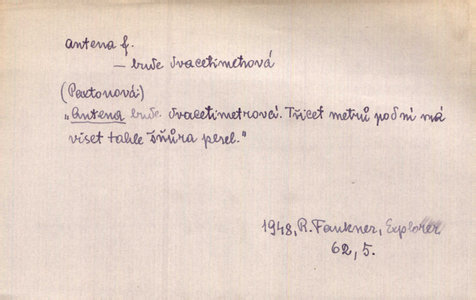 antena f.
— bude dvacetimetrová
(Paxtonová:)
„Antena bude dvacetimetrová. Třicet metrů pod ní má
viset tahle šňůra perel."
1948, R. Faukner, Explorer
62, 5.